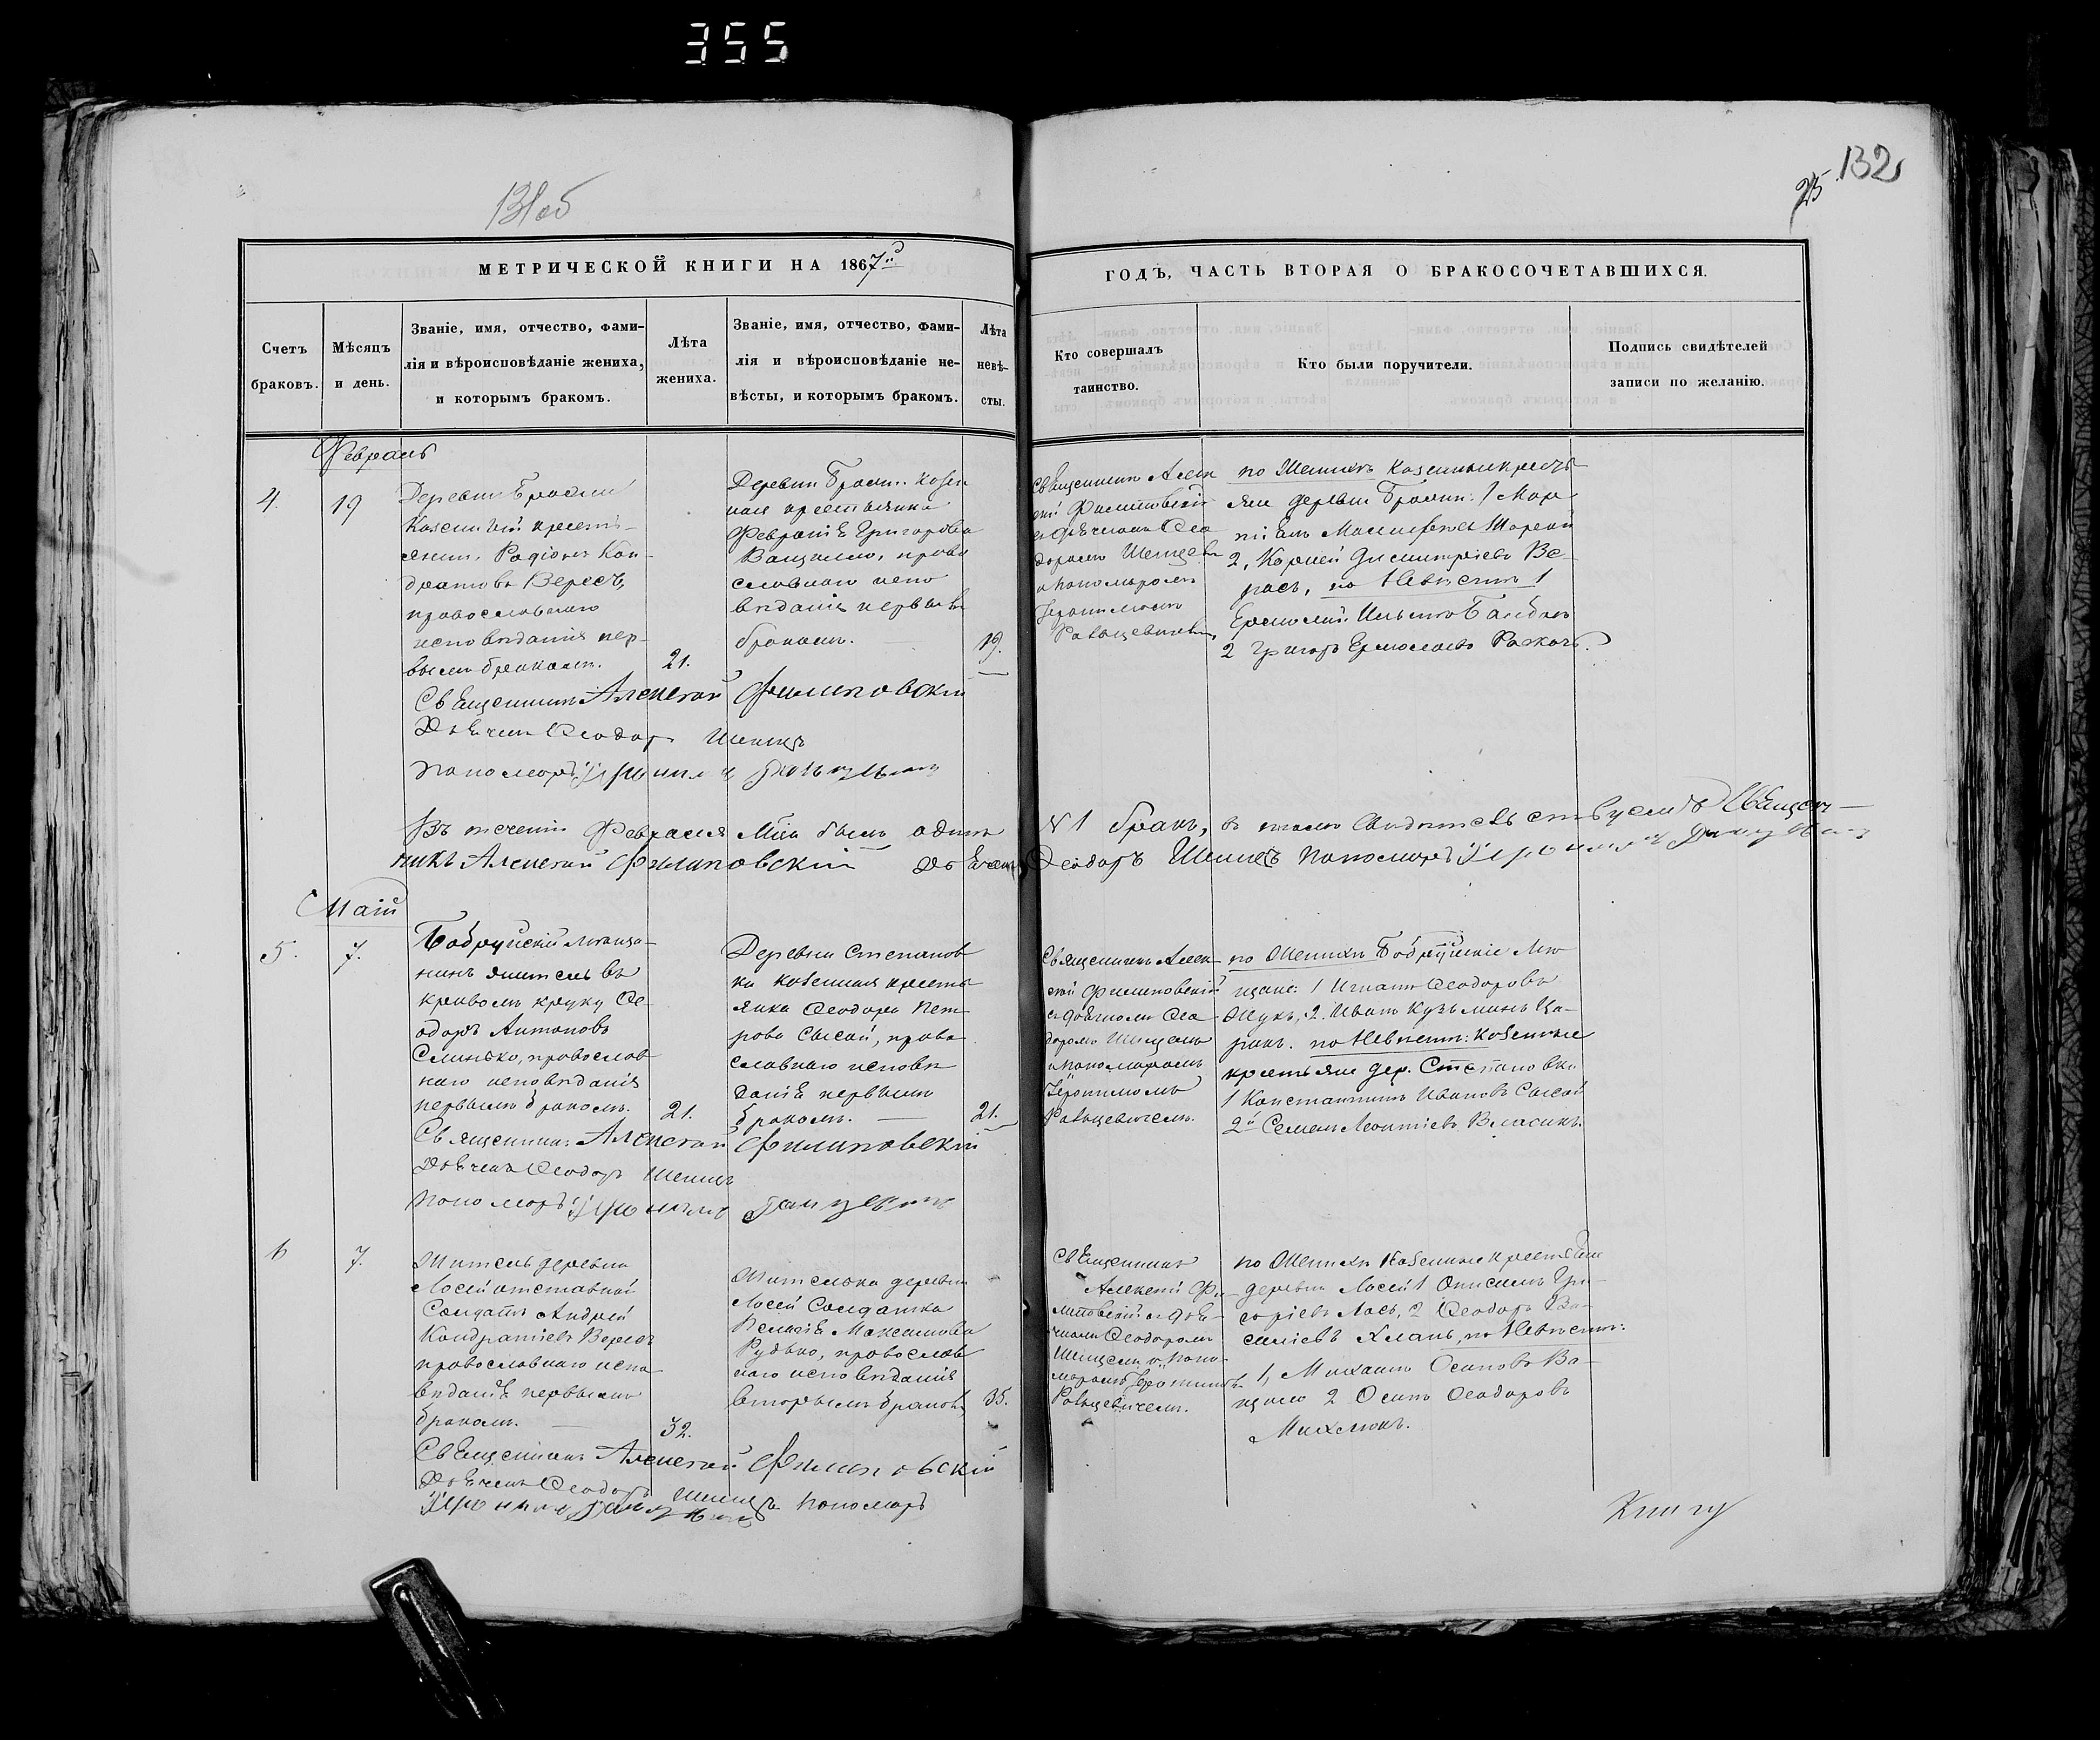 355
131об
25 132
МЕТРИЧЕСКОЙ КНИГИ НА 1867й
ГОДЪ, ЧАСТЬ ВТОРАЯ О БРАКОСОЧЕТАВШИХСЯ.
Счетъ
браковъ.
Мѣсяцъ
и день.
Званіе, имя, отчество, фами-
лія и вѣроисповѣданіе жениха,
и которымъ бракомъ.
Лѣта
жениха.
Званіе, имя, отчество, фами-
лія и вѣроисповѣданіе не-
вѣсты, и которымъ бракомъ.
Лѣта
невѣ-
сты.
Кто совершалъ
таинство.
Кто были поручители.
Подпись свидѣтелей
записи по желанію.
Февраль
4.
19
Деревни
Казенный кресть-
янинъ, Радіонъ Кон-
дратовъ Вересъ,
православнаго
исповѣданія пер-
вымъ бракомъ.
21.
Деревни Казен
ная крестьянка
Григорьева
право
славнаго испо
вѣданія первымъ
бракомъ.
19.
Священникъ Алек
сѣй Филиповскій
съ дьячкомъ Ѳео
доромъ
и пономаремъ
Іеронимомъ
по Женихѣ казенные кресть
яне деревни
2, Корней Димитріевъ Ве-
расъ, по Невѣстѣ 1
Ермолай
2 Григорь Ермолаевъ
Священникъ Алексѣй Филиповскій
Дьячекъ Ѳеодоръ
Пономарь Іеронимъ
Въ теченіи Февраля м-ца былъ одинъ
№ 1 бракъ, въ томъ свидѣтельствуемъ Священ-
никъ Алексѣй Филиповскій Дьячекъ
Ѳеодоръ Пономарь Іеронимъ
Маій
5.
7.
Бобруйскій мѣща-
нинъ житель въ
кривомъ крюку Ѳе-
одоръ Антоновъ
Слинько, православ
наго исповѣданія
первымъ бракомъ.
21.
Деревни Степанов
ки казенная кресть
янка Ѳеодора Пет
рова Сысой, право
славнаго исповѣ
данія первымъ
бракомъ.
21.
Священникъ Алек-
сѣй Филиповскій
съ дьячкомъ Ѳео
доромъ
и пономаремъ
Іеронимомъ
по Женихѣ Бобруйскіе мѣ
щане: 1 Игнатъ Ѳеодоровъ
Жукъ, 2. Иванъ Кузьминъ
по Невѣстѣ: казенные
крестьяне дер. Степановки
1 Константинъ Ивановъ Сысой
2й Семенъ Леонтіевъ Власикъ.
Священникъ Алексѣй Филиповскій
Дьячекъ Ѳеодоръ
Пономарь Іеронимъ
6
7.
Житель деревни
Лосей отставной
Солдатъ Андрей
Кондратіевъ Вересъ
православнаго испо
вѣданія первымъ
бракомъ.
32.
Жителька деревни
Лосей Солдатка
Пелагія Максимова
Рудько, православ
наго исповѣданія
вторымъ бракомъ,
35.
Священникъ
Алексѣй Фи-
липовскій съ дья-
чкомъ Ѳеодоромъ
и поно
маремъ Іеронимомъ
по Женихѣ казенные крестьяне
деревни Лосей 1 Онисимъ Гри-
горіевъ Лось, 2 Ѳеодоръ Ва-
силіевъ по Невѣстѣ:
1, Михаилъ Осиповъ Ва-
2 Осипъ Ѳеодоровъ
Михлюкъ.
Священникъ Алексѣй Филиповскій
Дьячекъ Ѳеодоръ Пономарь
Іеронимъ
Книгу